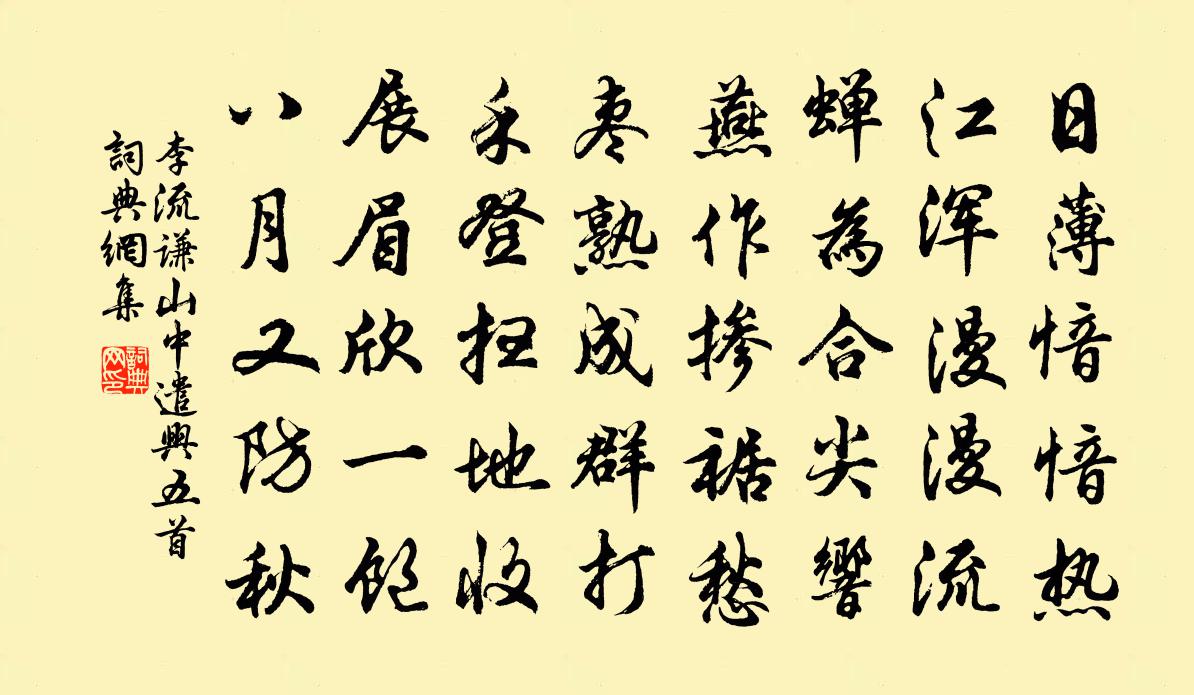 日薄愔愔热
江浑漫漫流
蝉為合尖響
燕作掺裾愁
枣熟成群打
禾登扫地收
展眉欣一饱
八月又防秋
李流谦山中遣興五首
詞典網集
詞典网印